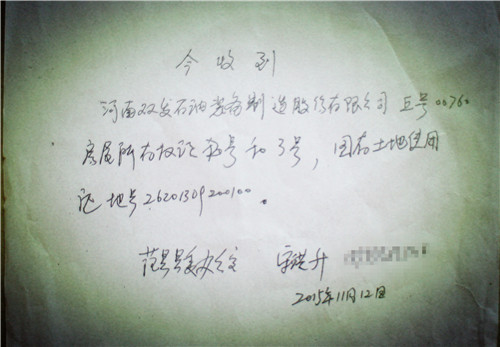 今收到
河南双发石油装备制造股份有限公司 豆号00760
房屋所有权证 号和3号，国有土地使用
证 地号26201309200100。
范县县委办公室 宋洪升
2015年11月12日